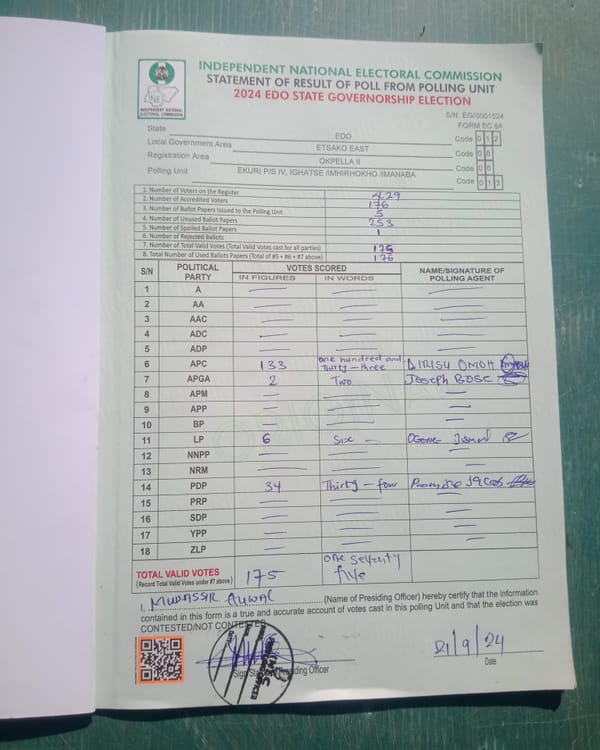 INDEPENDENT NATIONAL ELECTORAL COMMISSION
STATEMENT OF RESULT OF POLL FROM POLLING UNIT
2024 EDO STATE GOVERNORSHIP ELECTION
INEC
INDEPENDENT NATIONAL
ELECTORAL COMMISSION
S/N: EG/0001524
FORM EC 8A
State EDO Code 0 1 2
Local Government Area ETSAKO EAST Code 0 8
Registration Area OKPELLA II Code 0 6
Polling Unit EKURI P/S IV, IGHATSE /IMHIRHOKHO /IMANABA Code 0 1 3
1. Number of Voters on the Register 429
2. Number of Accredited Voters 176
3. Number of Ballot Papers Issued to the Polling Unit
4. Number of Unused Ballot Papers 253
5. Number of Spoiled Ballot Papers
6. Number of Rejected Ballots 1
7. Number of Total Valid Votes (Total Valid Votes cast for all parties) 175
8. Total Number of Used Ballots Papers (Total of #5 + #6 + #7 above) 176
S/N POLITICAL PARTY VOTES SCORED NAME/SIGNATURE OF POLLING AGENT
IN FIGURES IN WORDS
1 A
2 AA
3 AAC
4 ADC
5 ADP
6 APC 133 one hundred and Thirty-three DIRISU OMOH
7 APGA 2 Two Joseph BOSE
8 APM
9 APP
10 BP
11 LP 6 Six
12 NNPP
13 NRM
14 PDP 34 Thirty-four
15 PRP
16 SDP
17 YPP
18 ZLP
TOTAL VALID VOTES 175 one seventy five
(Record Total Valid Votes under #7 above)
I, MUDASSIR AUWAL (Name of Presiding Officer) hereby certify that the information
contained in this form is a true and accurate account of votes cast in this polling Unit and that the election was
CONTESTED/NOT CONTESTED
Presiding Officer
21/9/24
Date